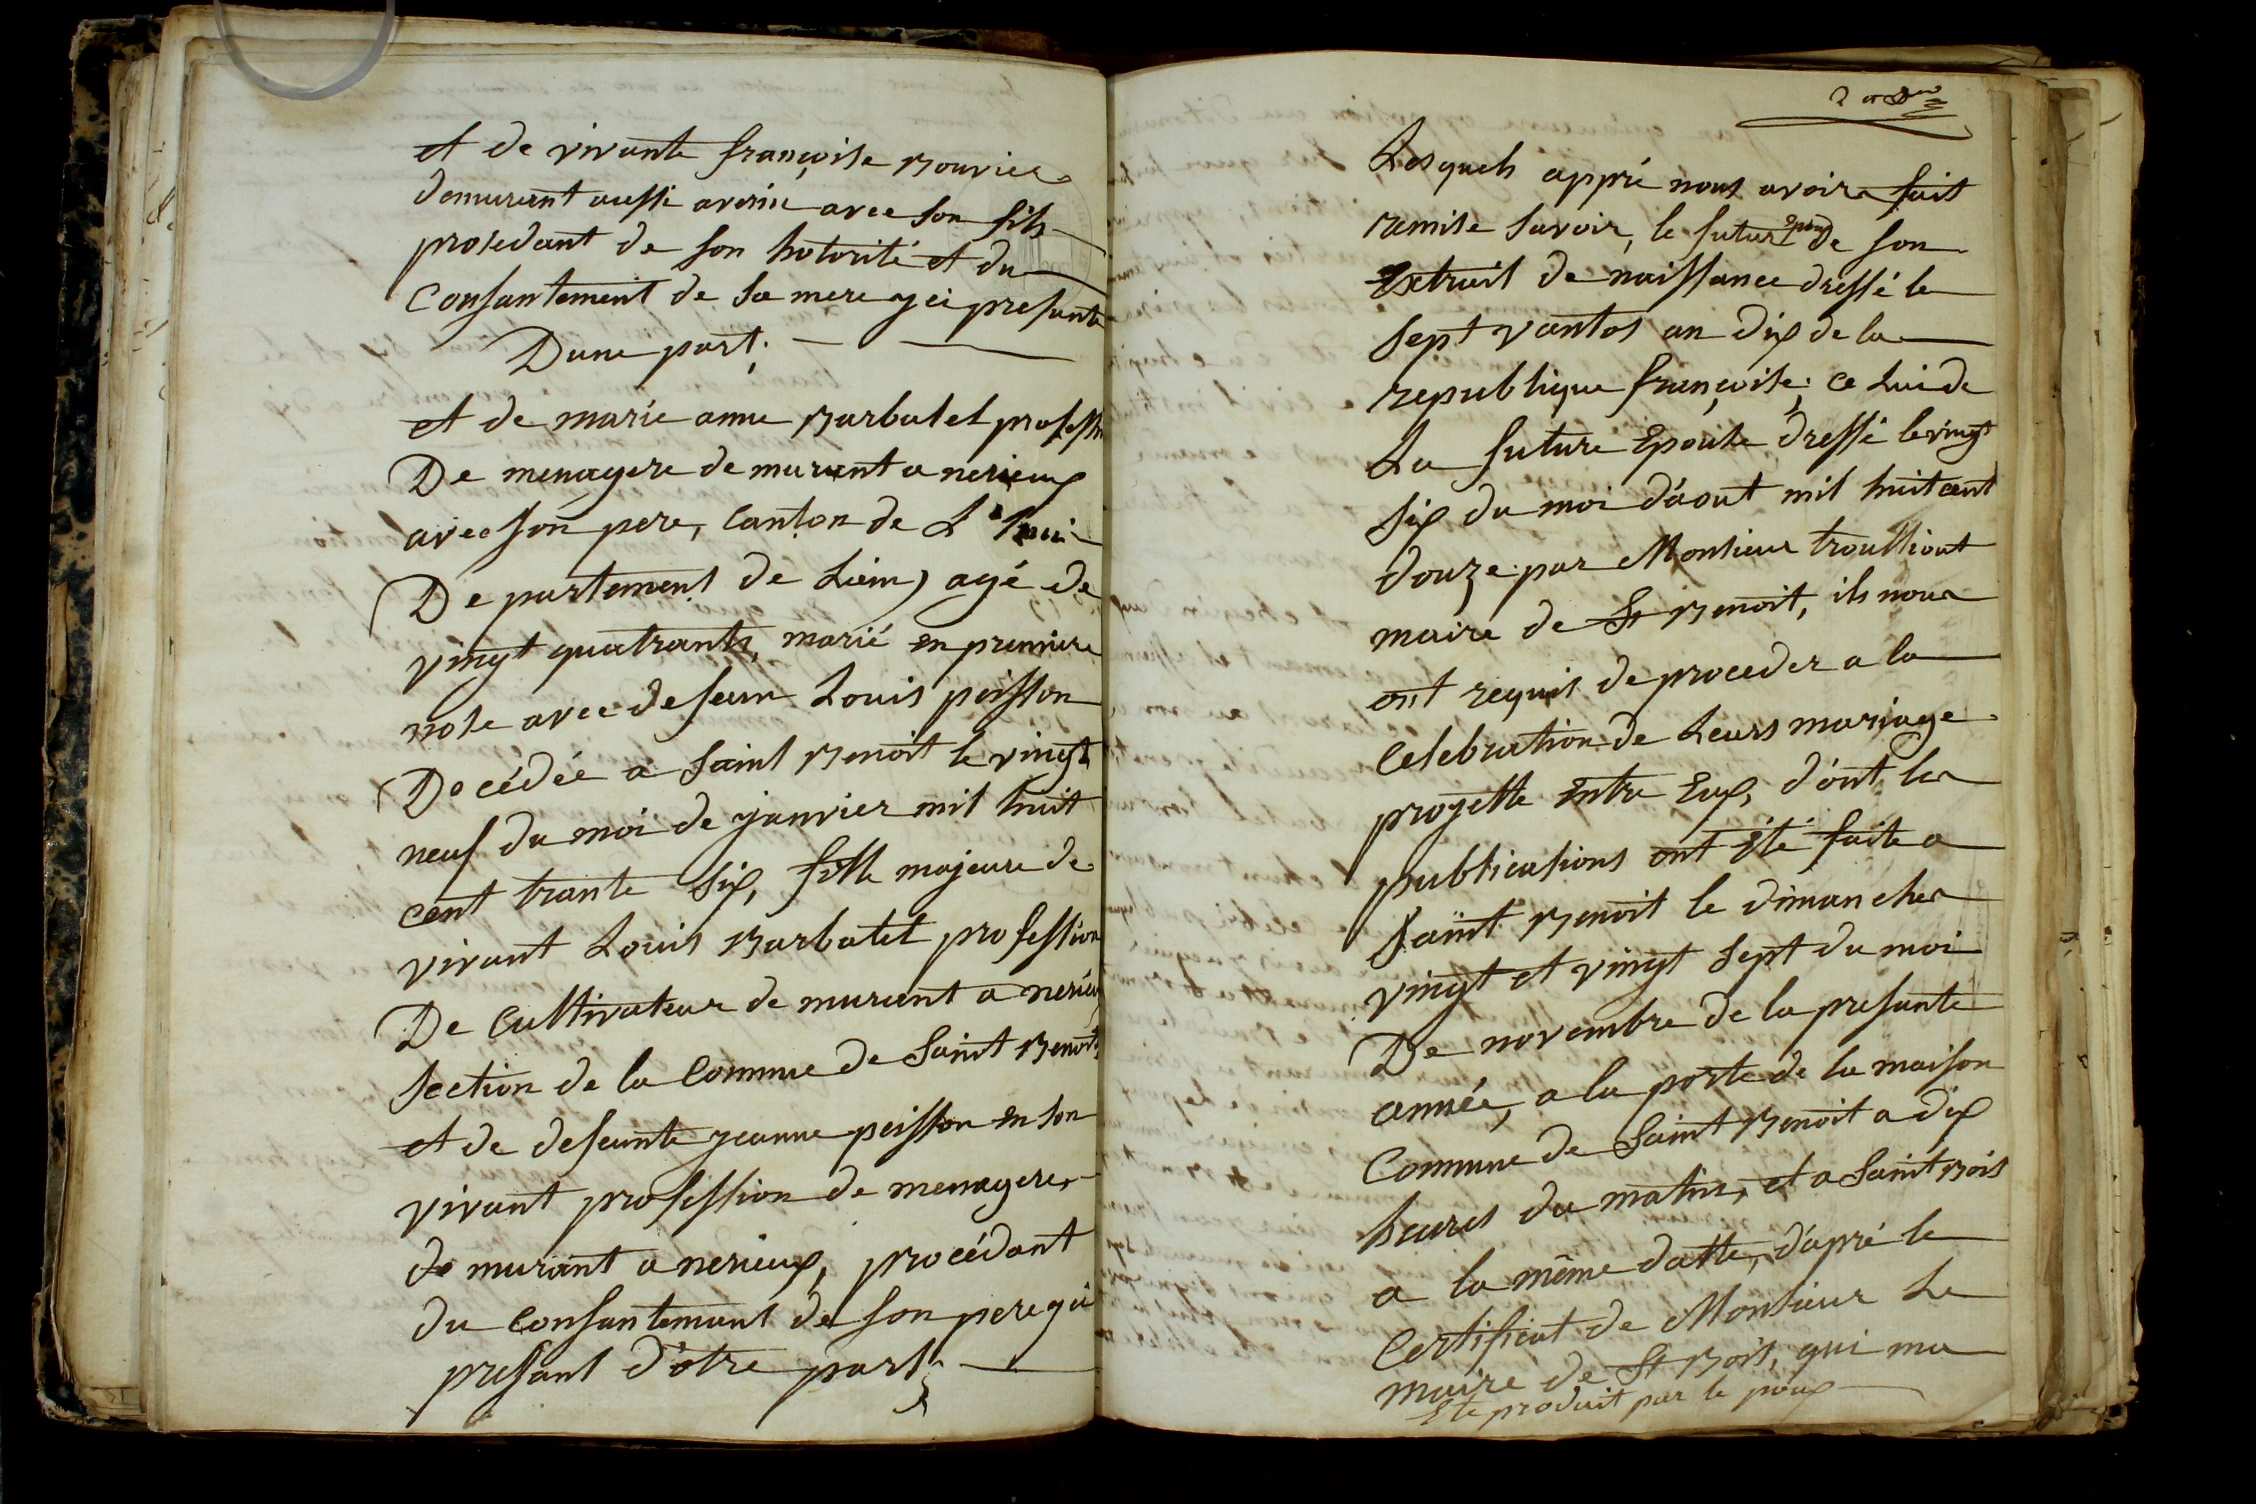 et de vivante françoise Bouvier
demurant aussi avenie avec son fils
prosedant de son hotorité et du
Consantement de sa mere yci presante
Dune part;
et de marie anne Barbatel profession
De menagere demurant a nerieux
avec son pere, Canton de L'huis
Departement de Liein, agé de
vingt quatrants, marié en premiere
nose avec defeun Louis poisson
Decédée a Saint Benoit le vingt
neuf du moi de janvier mil huit
cent trante six, fille majeure de
vivant Louis Barbatel profession
De Cultivateur demurant a nerieux
section de la Commune de Saint Benoit,
et de defeunte jeanne poisson en son
vivant profession de menagere
demurant a nerieux, procédant
du consantemant de son pere yci
presant d'otre part
Lesquels appré nous avoire fait
remise savoir, le futur Epoux de son
Extrait de naissance dressé le
sept vantos an dix de la
republique françoise; ce Lui de
La future Epouse dressé le vingt
six du moi d'aout mil huit cent
douze par Monsieur trouilliout
maire de St Benoit, ils nous
ont requis de proceder a la
Celebration de Leurs mariage
projette Entre Eux, d'ont les
publications ont Eté faite a
Saint Benoit le dimanches
vingt et vingt sept du moi
De novembre de la presante
année, a la porte de la maison
Commune de Saint Benoit a dix
heures du matin, et a Saint Bois
a la même datte, d'apré le
Certificat de Monsieur Le
maire de St Bois, qui ma
Ete produit par le poux